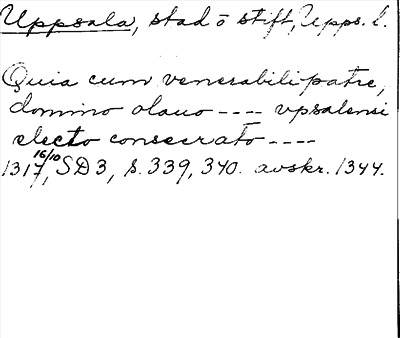 Uppsala, stad o stift, Upps. l.
Quia cum venerabili patre,
domino olauo ---- vpsalensi
electo consecrato ----
1317 16/10, SD 3, s. 339, 340. avskr. 1344.